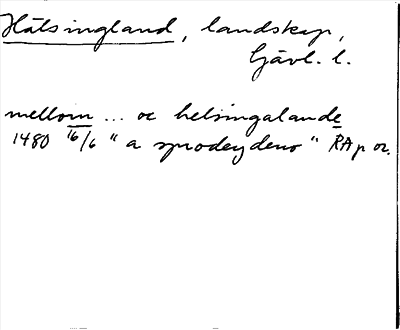 Hälsingland, landskap,
Gävl. l.
mellom ... oc helsingalande
1480 16/6 "a sprodeydens" RAp or.